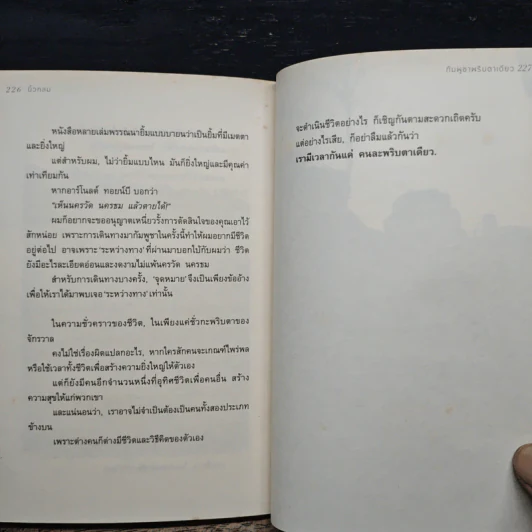 226 นิ้วกลม
หนังสือหลายเล่มพรรณนายิ้มแบบบายนว่าเป็นยิ้มที่มีเมตตา
และยิ่งใหญ่
แต่สำหรับผม, ไม่ว่ายิ้มแบบไหน มันก็ยิ่งใหญ่และมีคุณค่า
เท่าเทียมกัน
หากอาร์โนลด์ ทอยน์บี บอกว่า
"เห็นนครวัด นครธม แล้วตายได้!"
ผมก็อยากจะขออนุญาตเหนี่ยวรั้งการตัดสินใจของคุณเอาไว้
สักหน่อย เพราะการเดินทางมากัมพูชาในครั้งนี้ทำให้ผมอยากมีชีวิต
อยู่ต่อไป อาจเพราะ 'ระหว่างทาง' ที่ผ่านมาบอกไปกับผมว่า ชีวิต
ยังมีอะไรละเอียดอ่อนและงดงามไม่แพ้นครวัด นครธม
สำหรับการเดินทางบางครั้ง, 'จุดหมาย' จึงเป็นเพียงข้ออ้าง
เพื่อให้เราได้มาพบเจอ 'ระหว่างทาง' เท่านั้น
ในความชั่วคราวของชีวิต, ในเพียงแค่ชั่วกะพริบตาของ
จักรวาล
คงไม่ใช่เรื่องผิดแปลกอะไร, หากใครสักคนจะเกณฑ์ไพร่พล
หรือใช้เวลาทั้งชีวิตเพื่อสร้างความยิ่งใหญ่ให้ตัวเอง
แต่ก็ยังมีคนอีกจำนวนหนึ่งที่อุทิศชีวิตเพื่อคนอื่น สร้าง
ความสุขให้แก่พวกเขา
และแน่นอนว่า, เราอาจไม่จำเป็นต้องเป็นคนทั้งสองประเภท
ข้างบน
เพราะต่างคนก็ต่างมีชีวิตและวิธีคิดของตัวเอง
กัมพูชาพริบตาเดียว 227
จะดำเนินชีวิตอย่างไร ก็เชิญกันตามสะดวกเถิดครับ
แต่อย่างไรเสีย, ก็อย่าลืมแล้วกันว่า
เรามีเวลากันแค่ คนละพริบตาเดียว.